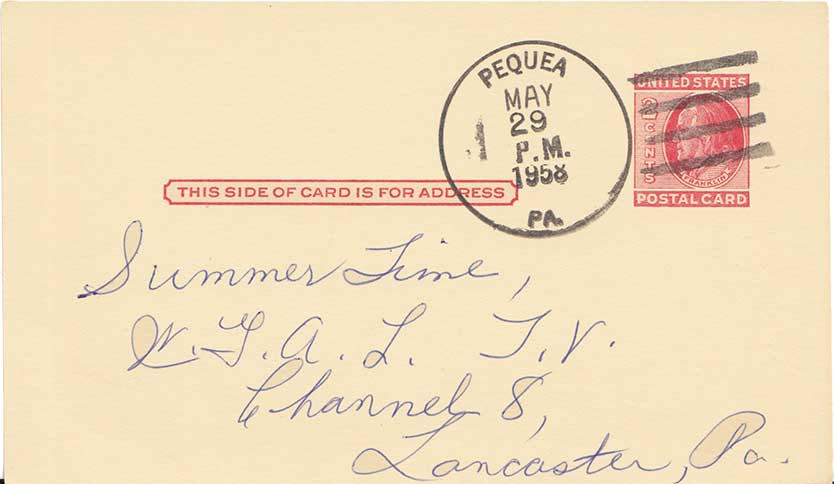 PEQUEA
MAY
29
P.M.
1958
PA.
UNITED STATES
2 CENTS
FRANKLIN
POSTAL CARD
THIS SIDE OF CARD IS FOR ADDRESS
Summer Time,
W. G. A. L. T.V.
Channel 8,
Lancaster, Pa.